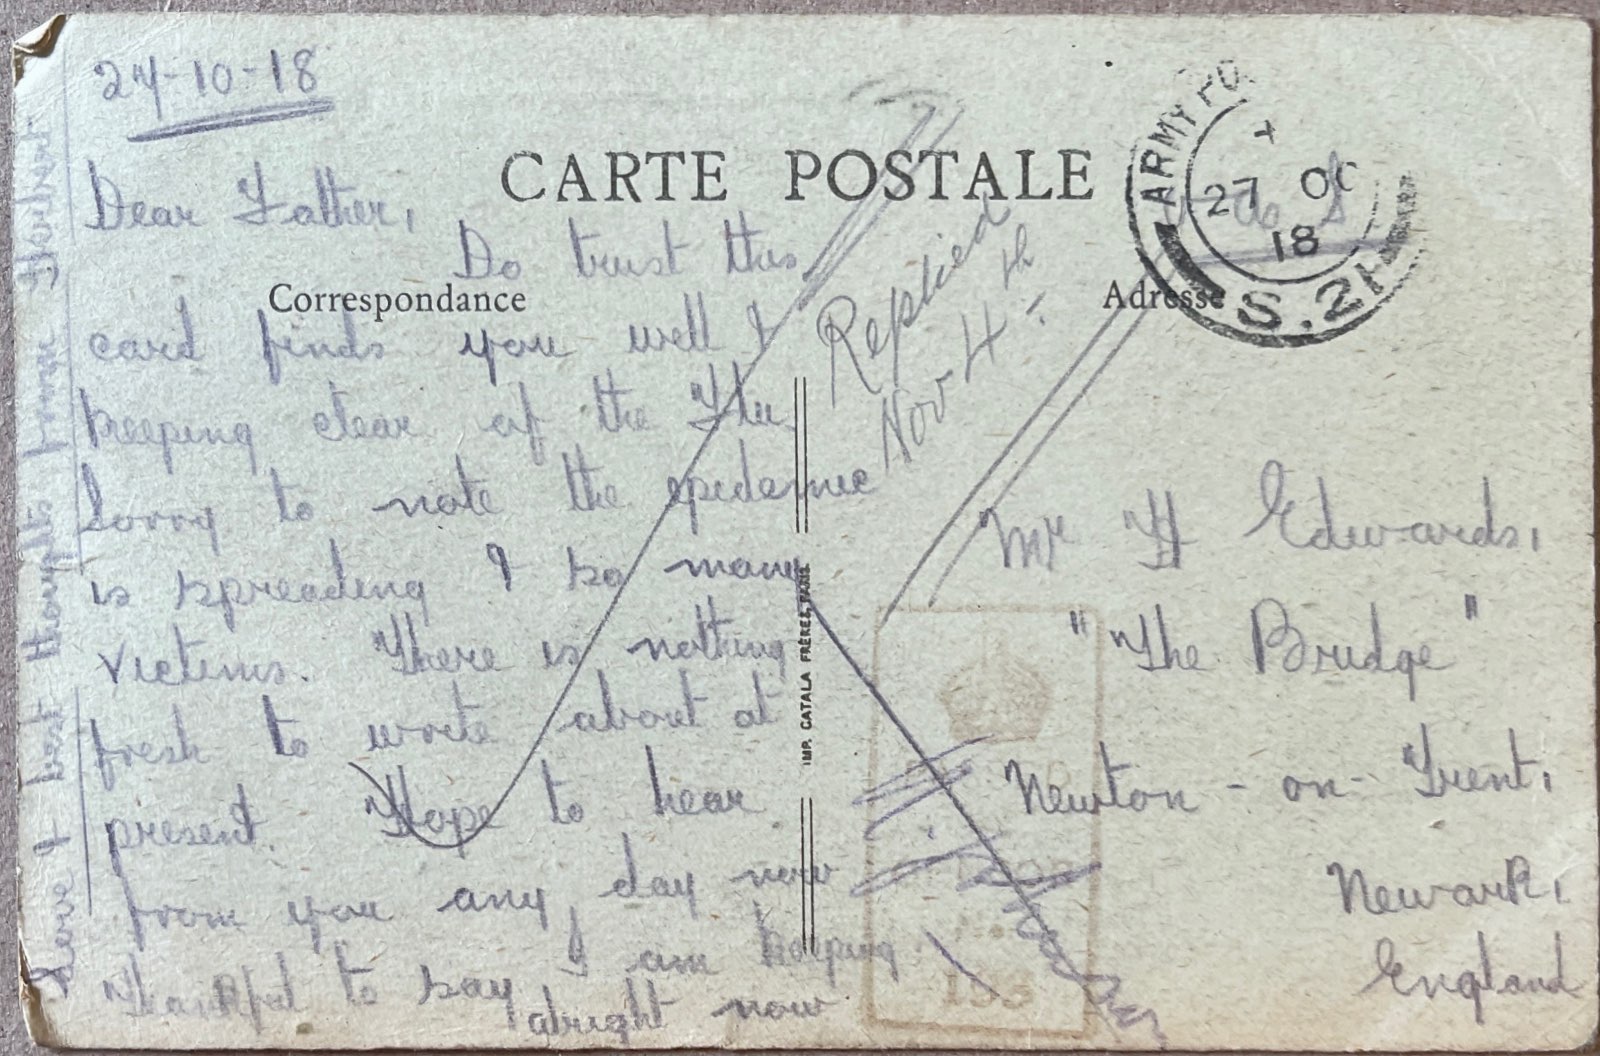 24-10-18
CARTE POSTALE
Correspondance
Dear Father,
Do trust this
card finds you well &
keeping clear of the Flu.
Sorry to note the epidemic
is spreading & so many
victims. There is nothing
fresh to write about at
present. Hope to hear
from you any day now
thankful to say I am keeping
alright now
Love & best thoughts from Herbert.
Replied
Nov 4th
IMP. CATALA FRÈRES, PARIS.
ARMY P.O.
X
27 OC
18
S.21
Adresse
Mr H Edwards,
"The Bridge"
Newton-on-Trent,
Newark,
England